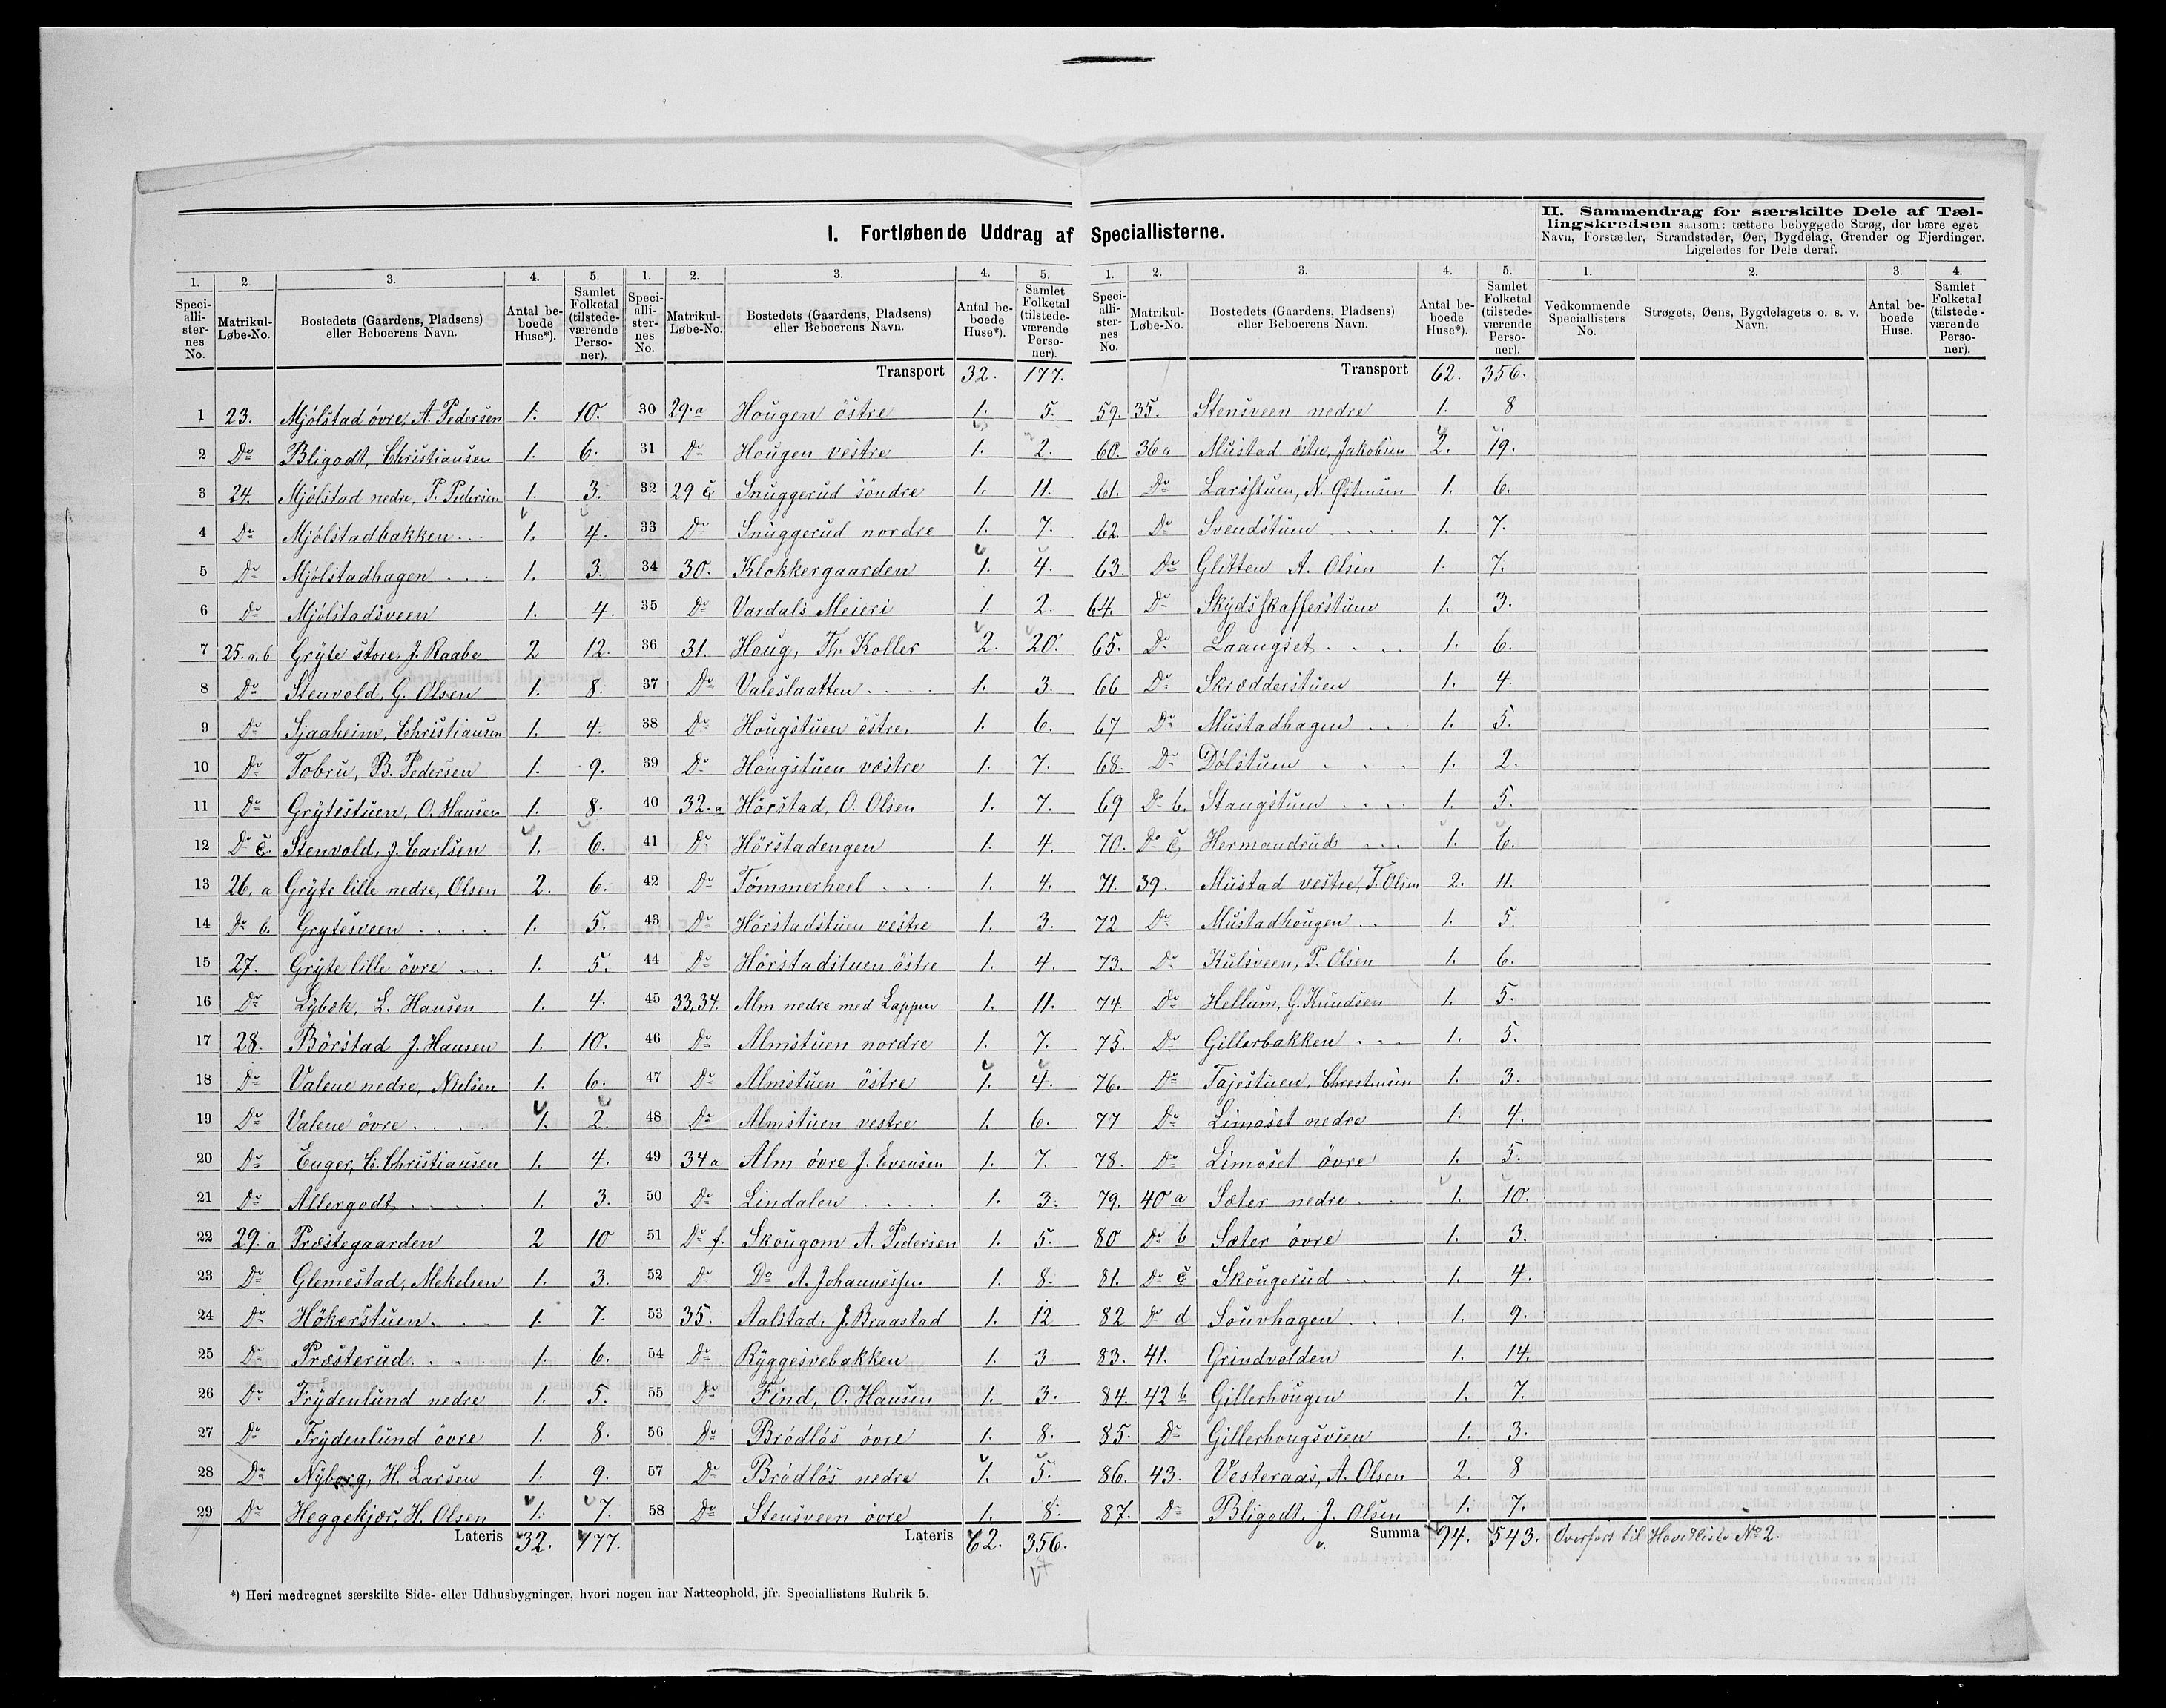 I. Fortløbende Uddrag af Speciallisterne.
II. Sammendrag for særskilte Dele af Tæl-
lingskredsen saasom: tættere bebyggede Strøg, der bære eget
Navn, Forstæder, Strandsteder, Øer, Bygdelag, Grender og Fjerdinger.
Ligeledes for Dele deraf.
1. 2. 3. 4. 5.
Speci-alli-ster-nes No. Matrikul-Løbe-No. Bostedets (Gaardens, Pladsens) eller Beboerens Navn. Antal be-boede Huse*). Samlet Folketal (tilstede-værende Perso-ner).
1 23. Mjölstad övre, A. Pedersen 1. 10.
2 Do Bligodt, Christiansen 1. 6.
3 24. Mjölstad nedre, P. Pedersen 1. 3.
4 Do Mjölstadbakken 1. 4.
5 Do Mjölstadhagen 1. 3.
6 Do Mjölstadsveen 1. 4.
7 25.a,b Gryte store, J. Raabe 2 12.
8 Do Stenvold, G. Olsen 1. 8.
9 Do Sjaaheim, Christiansen 1. 4.
10 Do Tobru, B. Pedersen 1. 9.
11 Do Grytestuen, O. Hansen 1. 8.
12 Do c. Stenvold, J. Carlsen 1. 6.
13 26.a Gryte lille nedre, Olsen 2. 6.
14 Do b. Grytesveen 1. 5.
15 27. Gryte lille övre 1. 5.
16 Do Lybæk, L. Hansen 1. 4.
17 28. Börstad J. Hansen 1. 10.
18 Do Valene nedre, Nielsen 1. 6.
19 Do Valene övre 1. 2.
20 Do Enger, C. Christiansen 1. 4.
21 Do Allergodt 1. 3.
22 29.a Præstegaarden 2 10
23 Do Glemestad, Mekelsen 1. 3.
24 Do Hökerstuen 1. 7.
25 Do Præsterud 1. 6.
26 Do Frydenlund nedre 1. 5.
27 Do Frydenlund övre 1. 8.
28 Do Nyborg, H. Larsen 1. 9.
29 Do Heggekjær, H. Olsen 1. 7.
Lateris 32. 177.
1. 2. 3. 4. 5.
Speci-alli-ster-nes No. Matrikul-Løbe-No. Bostedets (Gaardens, Pladsens) eller Beboerens Navn. Antal be-boede Huse*). Samlet Folketal (tilstede-værende Perso-ner).
Transport 32. 177.
30 29.a Hougen östre 1. 5.
31 Do Hougen vestre 1. 2.
32 29 c Snuggerud söndre 1. 11.
33 Do Snuggerud nordre 1. 7.
34 30. Klokkergaarden 1. 4.
35 Do Vardals Meieri 1. 2.
36 31. Houg, Th. Koller 2. 20.
37 Do Valeslaatten 1. 3.
38 Do Hougstuen östre 1. 6.
39 Do Hougstuen væstre 1. 7.
40 32.a Hörstad, O. Olsen 1. 7.
41 Do Hörstadengen 1. 4.
42 Do Tømmerhoel 1. 4.
43 Do Hörstadstuen vestre 1. 3.
44 Do Hörstadstuen östre 1. 4.
45 33,34. Alm nedre med Lappen 1. 11.
46 Do Almstuen nordre 1. 7.
47 Do Almstuen östre 1. 4.
48 Do Almstuen vestre 1. 6.
49 34a Alm övre J. Evensen 1. 7.
50 Do Lindalen 1. 3.
51 Do f. Skougom A. Pedersen 1. 5.
52 Do Do A. Johannessen 1. 8.
53 35. Aalstad, J. Braastad 1. 12
54 Do Ryggesvebakken 1. 3
55 Do Find, O. Hansen 1. 3.
56 Do Brödlös övre 1. 8.
57 Do Brödlös nedre 1. 5.
58 Do Stensveen övre 1. 8.
Lateris 62. 356.
1. 2. 3. 4. 5.
Speci-alli-ster-nes No. Matrikul-Løbe-No. Bostedets (Gaardens, Pladsens) eller Beboerens Navn. Antal be-boede Huse*). Samlet Folketal (tilstede-værende Perso-ner).
Transport 62. 356.
59. 35. Stensveen nedre 1. 8
60. 36a Mustad östre, Jakobsen 2. 19.
61. Do Larsstuen, N. Østensen 1. 6.
62. Do Svendstuen 1. 7.
63. Do Glitten A. Olsen 1. 7.
64. Do Skydsskafferstuen 1. 3.
65. Do Laangset 1. 6.
66 Do Skrædderstuen 1. 4.
67 Do Mustadhagen 1. 5.
68. Do Dølstuen 1. 2.
69 Do b. Stangstuen 1. 5.
70. Do c, Hermandrud 1. 6.
71. 39. Mustad vestre, T. Olsen 2. 11.
72 Do Mustadhougen 1. 5.
73. Do Kulsveen, P. Olsen 1. 6.
74. Do Hellum, G. Knudsen 1. 5.
75. Do Gillerbakken 1. 5.
76. Do Tajestuen, 1. 3.
77 Do Limoset nedre 1. 4.
78. Do Limoset övre 1. 5.
79. 40 a Sæter nedre 1. 10.
80 Do b Sæter övre 1. 3.
81. Do c Skougerud 1. 4.
82 Do d Souvhagen 1. 9.
83. 41. Grindvolden 1. 14.
84. 42 b Gillerhougen 1. 7.
85. Do Gillerhougsveen 1. 3.
86. 43. Vesteraas, A. Olsen 2. 8
87. Do Bligodt, J. Olsen 1. 7.
Summa 94. 543.
1. 2. 3. 4.
Vedkommende Speciallisters No. Strøgets, Øens, Bygdelagets o. s. v. Navn. Antal be-boede Huse. Samlet Folketal (tilstede-værende Perso-ner).
Overført til Hovedliste No 2.
*) Heri medregnet særskilte Side- eller Udhusbygninger, hvori nogen har Natteophold, jfr. Speciallistens Rubrik 5.